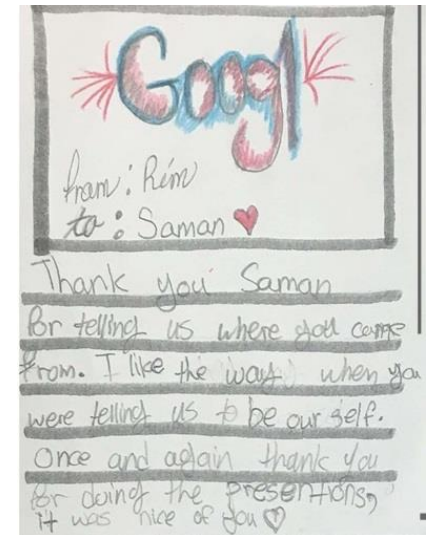 Googl
from: Rim
to: Saman
Thank you Saman
for telling us where you came
from. I like the way when you
were telling us to be our self.
Once and again thank you
for doing the presentions,
it was nice of you